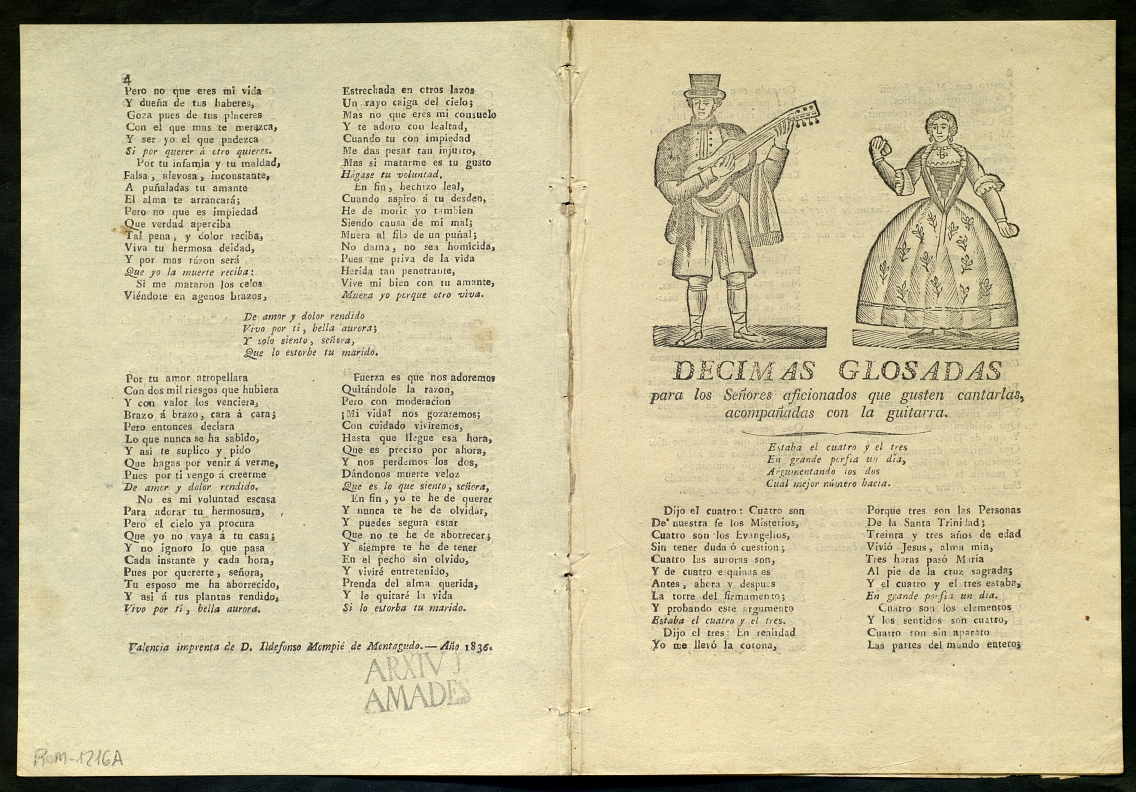 4
Pero no que eres mi vida
Y dueña de tus haberes,
Goza pues de tus placeres
Con el que mas te merezca,
Y ser yo el que padezca
Si por querer á otro quieres.
Por tu infamia y tu maldad,
Falsa, alevosa, inconstante,
A puñaladas tu amante
El alma te arrancará;
Pero no que es impiedad
Que verdad aperciba
Tal pena, y dolor reciba,
Viva tu hermosa deidad,
Y por mas rázon será
Que yo la muerte reciba:
Si me mataron los celos
Viéndote en agenos brazos,
Estrechada en otros lazos
Un rayo caiga del cielo;
Mas no que eres mi consuelo
Y te adoro con lealtad,
Cuando tu con impiedad
Me das pesar tan injusto,
Mas si matarme es tu gusto
Hágase tu voluntad.
En fin, hechizo leal,
Cuando aspiro á tu desden,
He de morir yo tambien
Siendo causa de mi mal;
Muera al filo de un puñal;
No dama, no sea homicida,
Pues me priva de la vida
Herida tan penetrante,
Vive mi bien con tu amante,
Muera yo porque otro viva.
De amor y dolor rendido
Vivo por ti, bella aurora;
Y solo siento, señora,
Que lo estorbe tu marido.
Por tu amor atropellara
Con dos mil riesgos que hubiera
Y con valor los venciera,
Brazo á brazo, cara á cara;
Pero entonces declara
Lo que nunca se ha sabido,
Y asi te suplico y pido
Que hagas por venir á verme,
Pues por ti vengo á creerme
De amor y dolor rendido.
No es mi voluntad escasa
Para adorar tu hermosura,
Pero el cielo ya procura
Que yo no vaya á tu casa;
Y no ignoro lo que pasa
Cada instante y cada hora,
Pues por quererte, señora,
Tu esposo me ha aborrecido,
Y asi á tus plantas rendido,
Vivo por ti, bella aurora.
Fuerza es que nos adoremos
Quitándole la razon,
Pero con moderacion
¡Mi vida! nos gozaremos;
Con cuidado viviremos,
Hasta que llegue esa hora,
Que es preciso por ahora,
Y nos perdemos los dos,
Dándonos muerte veloz
Que es lo que siento, señera,
En fin, yo te he de querer
Y nunca te he de olvidar,
Y puedes segura estar
Que no te he de aborrecer;
Y siempre te he de tener
En el pecho sin olvido,
Y viviré entretenido,
Prenda del alma querida,
Y le quitaré la vida
Si lo estorba tu marido.
Valencia imprenta de D. Ildefonso Mompié de Montagudo.—Año 1836.
ARXIU J
AMADES
ROM-1216A
DECIMAS GLOSADAS
para los Señores aficionados que gusten cantarlas,
acompañadas con la guitarra.
Estaba el cuatro y el tres
En grande porfia un dia,
Argumentando los dos
Cual mejor número hacia.
Dijo el cuatro: Cuatro son
De nuestra fe los Misterios,
Cuatro son los Evangelios,
Sin tener duda ó cuestion;
Cuatro las auroras son,
Y de cuatro esquinas es
Antes, ahora y despues
La torre del firmamento;
Y probando este argumento
Estaba el cuatro y el tres.
Dijo el tres: En realidad
Yo me llevó la corona,
Porque tres son las Personas
De la Santa Trinidad;
Treinta y tres años de edad
Vivió Jesus, alma mia,
Tres horas pasó María
Al pie de la cruz sagrada;
Y el cuatro y el tres estaba,
En grande porfia un dia.
Cuatro son los elementos
Y los sentidos son cuatro,
Cuatro son sin aparato
Las partes del mundo entero;